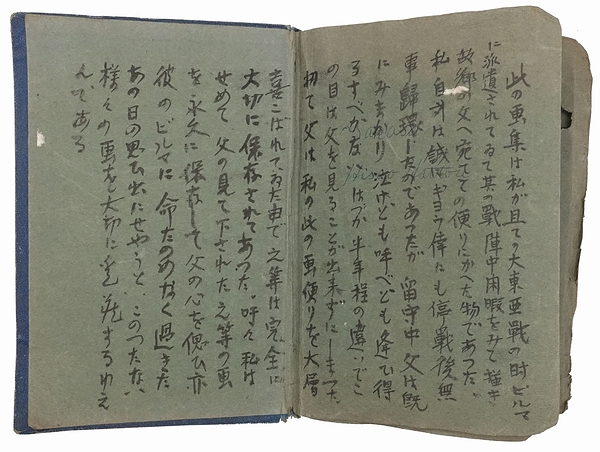 此の画集は私が且ての大東亜戦の時ビルマ
に派遣されてゐて其の戰陣中閑暇をみて描き
故郷の父へ宛てての便りにかへた物であつた。
私自身は誠にギヨウ倖にも停戦後無
事歸環したのであつたが 留守中父は既
にみまかり泣けども呼べども逢ひ得
るすべがない。はづか半年程の違いでこ
の目は父を見ることが出来ずにしまつた。
初て父は私の此の画便りを大層
喜こばれてゐた由で之等は完全に
大切に保存されてあつた。呼々私は
せめて父の見て下された之等の画
を永久に保存して父の心を偲び亦
彼のビルマに命たのめなく過きた
あの日の思ひ出にせやうと、このつたない
様々の画を大切に愛蔵するゆえ
んである